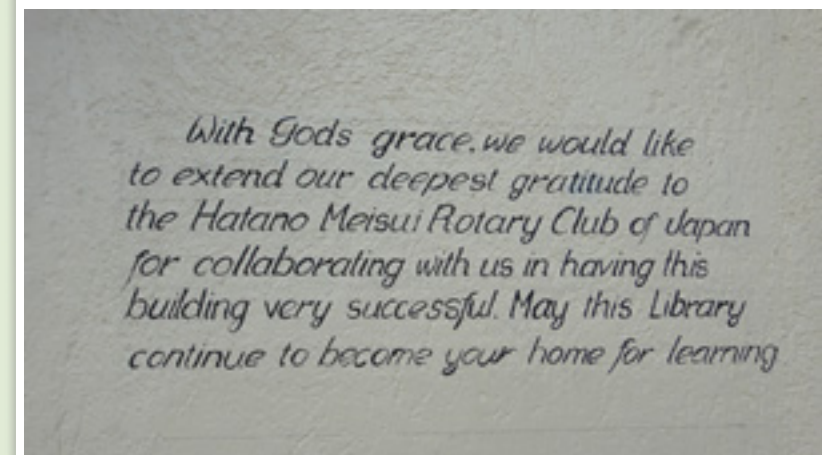 With Gods grace, we would like
to extend our deepest gratitude to
the Hatano Meisui Rotary Club of Japan
for collaborating with us in having this
building very successful. May this Library
continue to become your home for learning